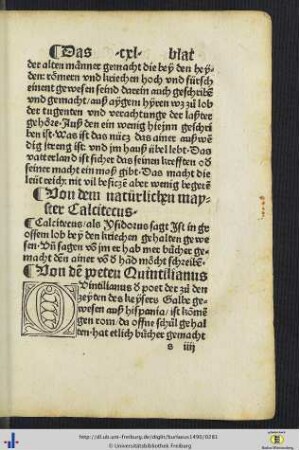 ¶Das ·cxl· blat
der alten männer gemacht die bey den hey-
den: römern vnd kriechen hoch vnd fürsch
einent gewesen seind darein auch geschribē
vnd gemacht / auß aygem hyren wz zů lob
der tugenten vnd verachtunge der laster
gehöret. Auß den ein wenig hieinn geschri
ben ist. Was ist das nücz das ainer auß wē
dig streng ist vnd im hauß übel lebt. Das
vatterland ist sicher das seinen krefften od
seiner macht ein maß gibt. Das macht die
leüt reich: nit vil besiczē aber wenig begerē
¶Von dem natürlichen may-
ster Calcitecus·
¶Calcitecus / als Ysidorus sagt Ist in gr
ossem lob bey den kriechen gehalten gewe
sen. Vñ sagen vō jm er hab mer bücher ge
macht dēn ainer vō d hād möcht schreibē.
¶Von dē peten Quintilianus
QVintilianus d poet der zů den
zeyten des keysers Galbe ge-
wesen auß hispania / ist kömē
gen rom / da offne schůl gehal
ten. hat etlich bücher gemacht
s iiij
http://dl.ub.uni-freiburg.de/diglit/burlaeus1490/0281
© Universitätsbibliothek Freiburg